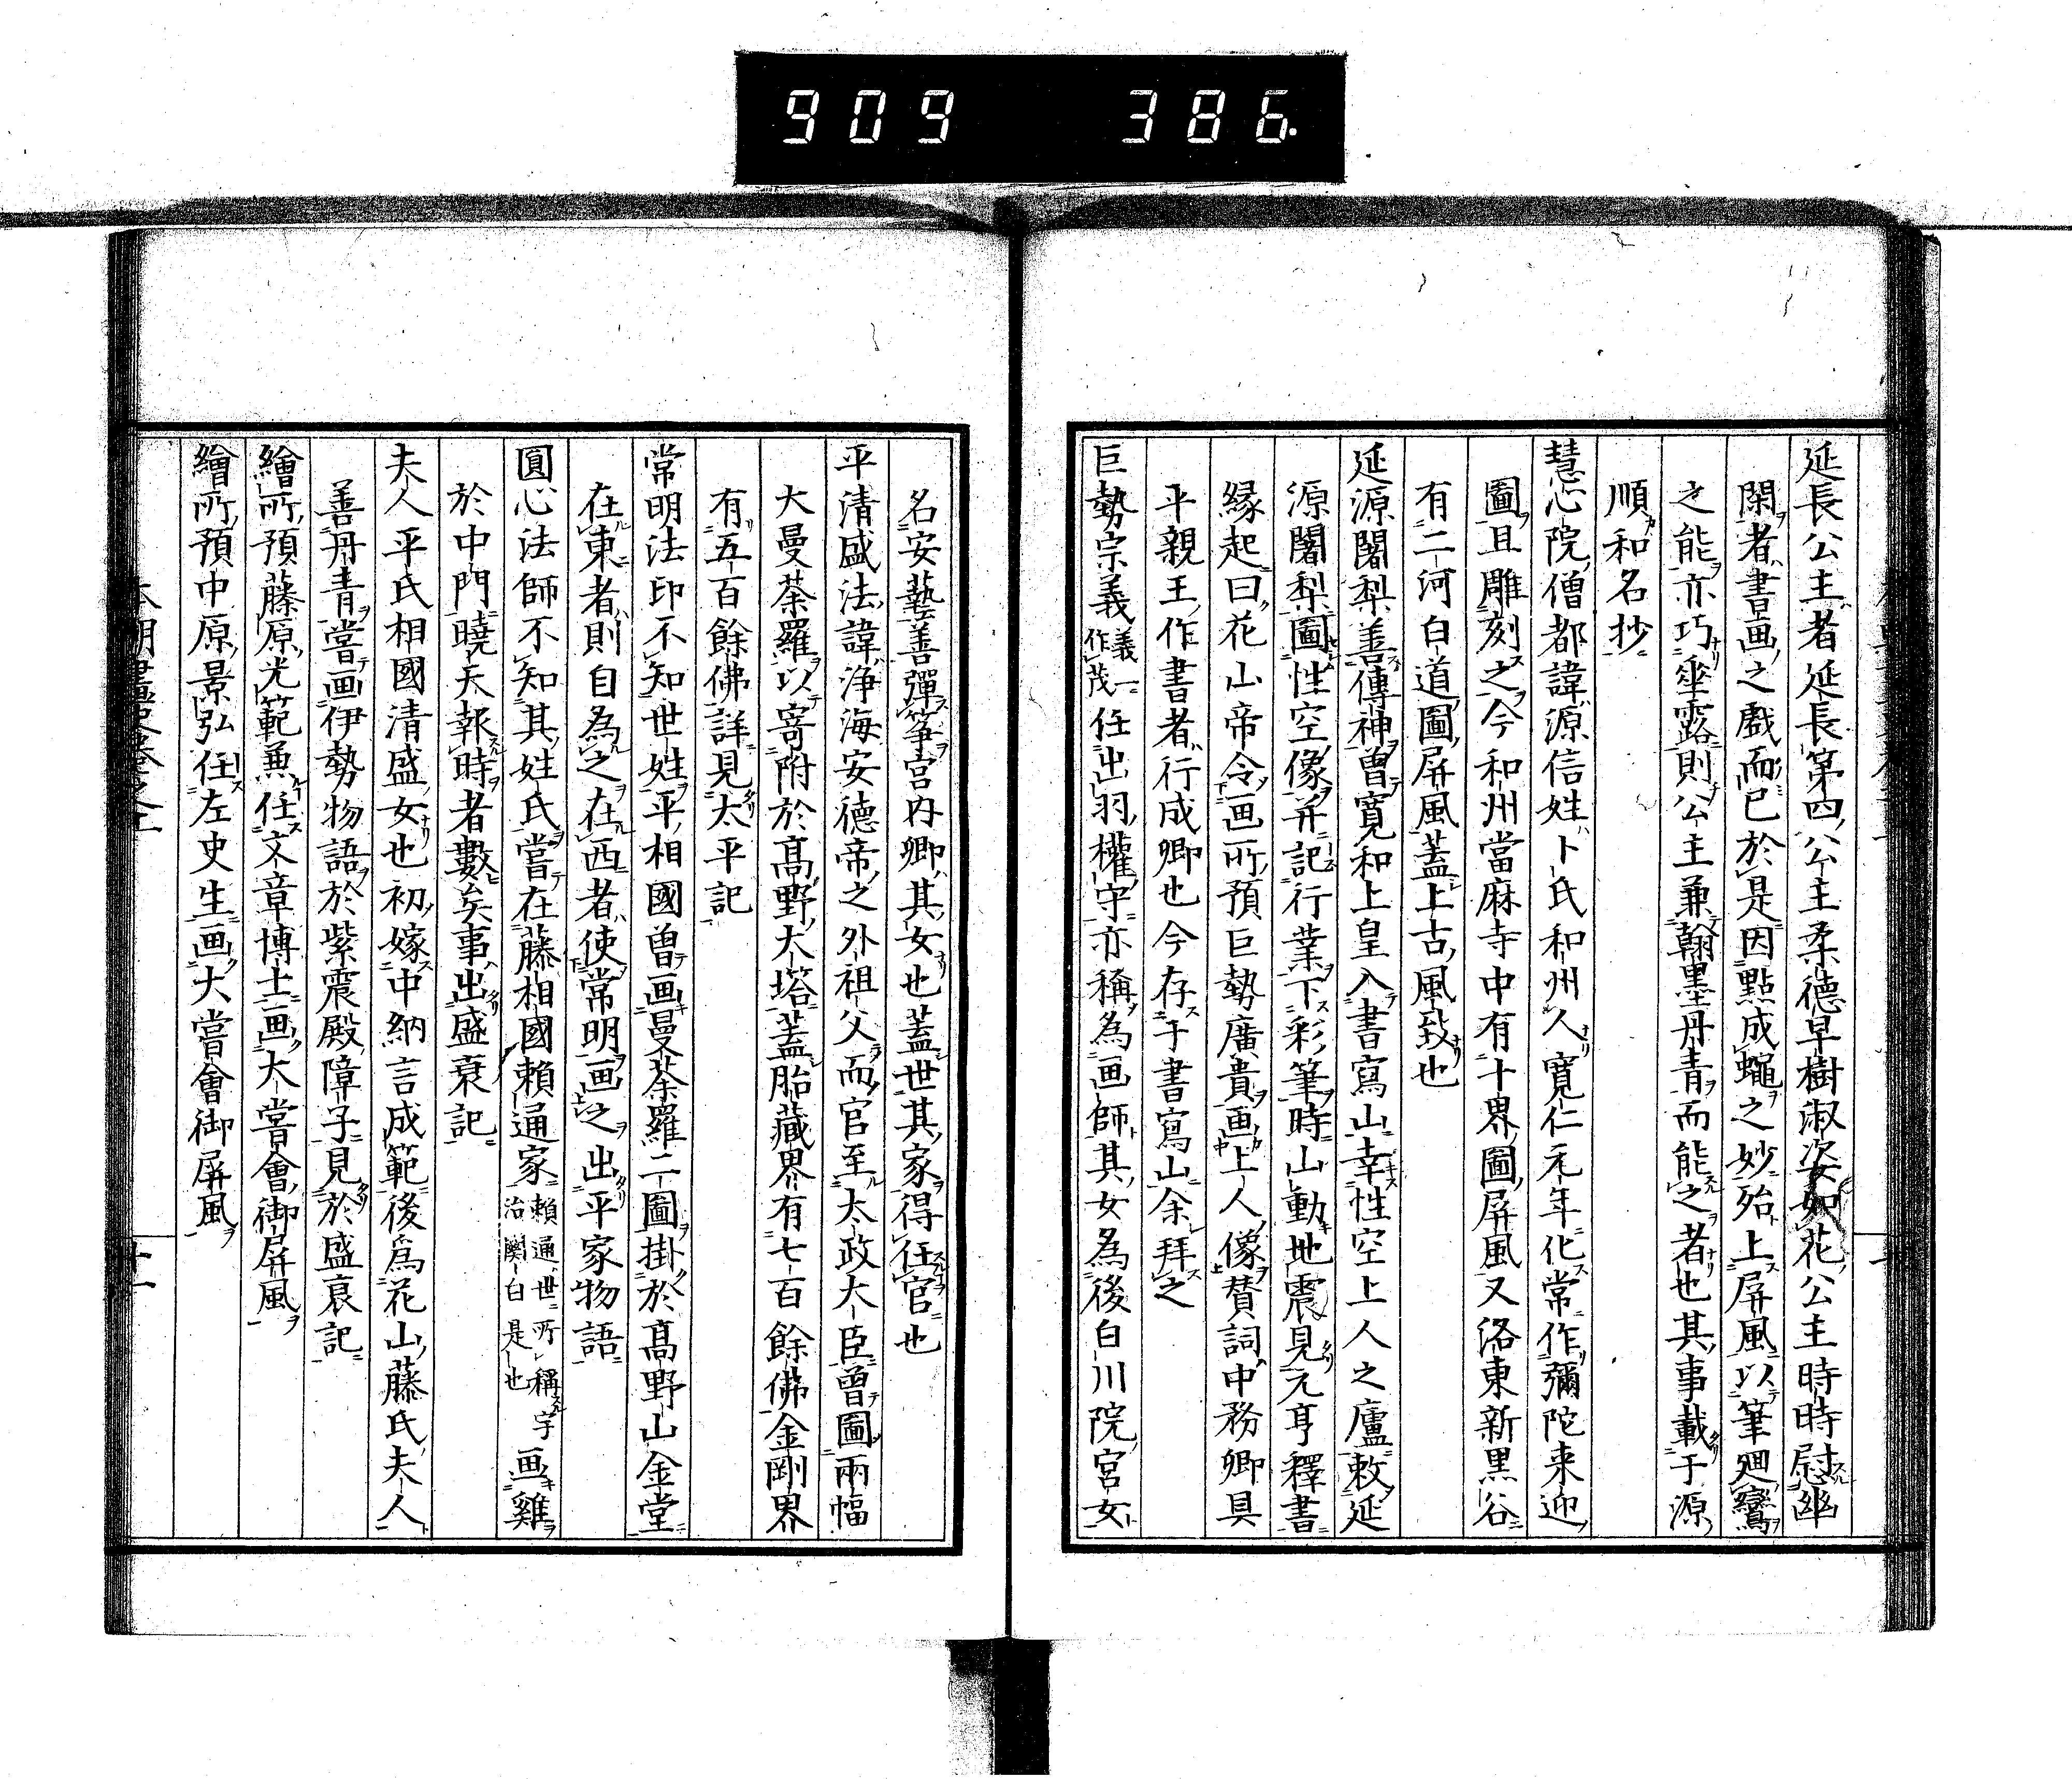 909 386.
延長公主者延長第四公主柔德早樹淑姿如花公主時時慰幽
閑者書画之戲而已於是因點成蠅之妙殆上屏風以筆廻鸞
之能亦巧垂露則公主兼翰墨丹青而能之者也其事載于源
順和名抄
慧心院僧都諱源信姓卜氏和州人寛仁元年化常作彌陀来迎
圖且雕刻之今和州當麻寺中有十界圖屏風又洛東新黒谷
有二河白道圖屏風蓋上古風致也
延源闍梨善傳神曽寛和上皇入書寫山幸性空上人之廬敕延
源闍梨圖性空像并記行業下彩筆時山動地震見元亨釋書
縁起曰花山帝令画所預巨勢廣貴画上人像賛詞中務卿具
平親王作書者行成卿也今存于書寫山余拜之
巨勢宗義義一作茂任出羽權守亦稱為画師其女為後白川院宮女
名安藝善彈箏宮内卿其女也蓋世其家得任官也
平清盛法諱浄海安德帝之外祖父而官至太政大臣曽圖兩幅
大曼荼羅以寄附於髙野大塔蓋胎藏界有七百餘佛金剛界
有五百餘佛詳見太平記
常明法印不知世姓平相國曽画曼荼羅二圖掛於髙野山金堂
在東者則自為之在西者使常明画之出平家物語
圓心法師不知其姓氏嘗在藤相國賴通家賴通世所稱宇治關白是也画雞
於中門曉天報時者數矣事出盛衰記
夫人平氏相國清盛女也初嫁中納言成範後為花山藤氏夫人
善丹青嘗画伊勢物語於紫震殿障子見於盛衰記
繪所預藤原光範兼任文章博士画大嘗會御屏風
繪所預中原景弘任左史生画大嘗會御屏風
本朝畫史卷之上
十一